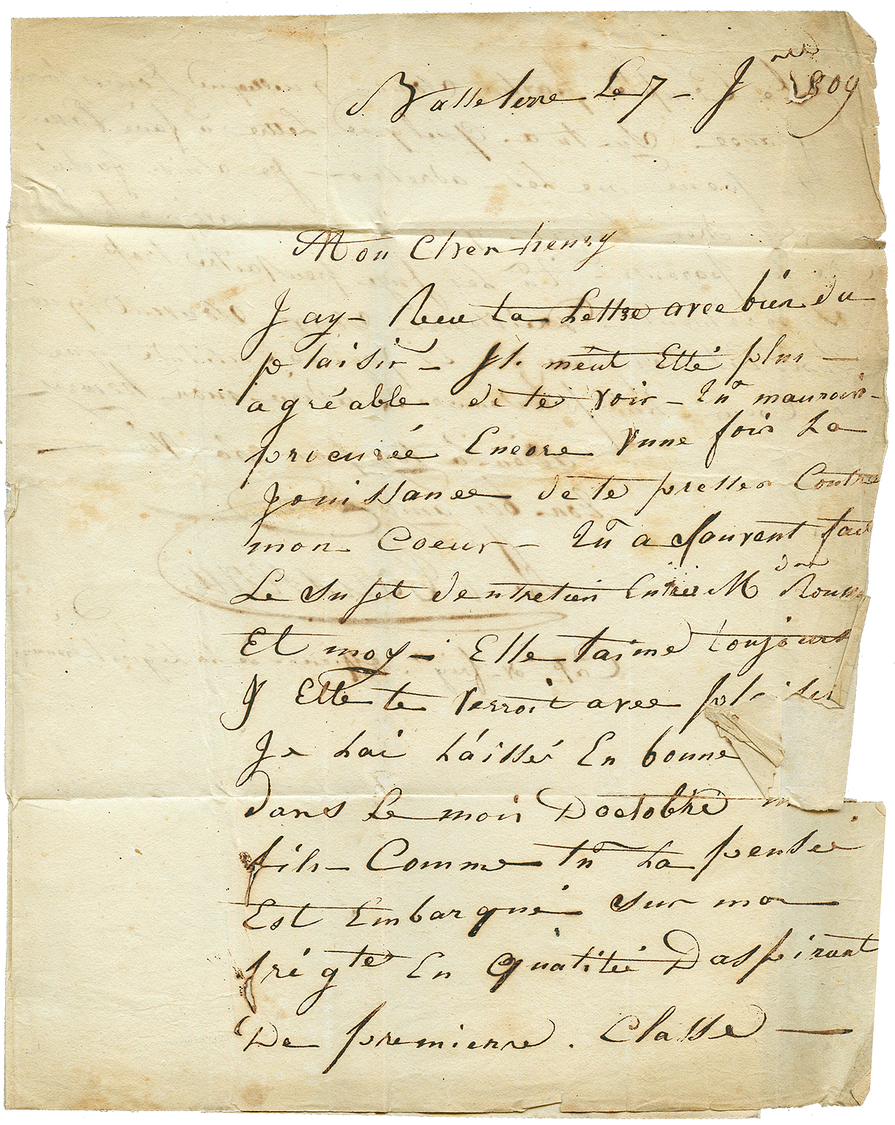 Basseterre Le 7 - J 1809
Mon Cher henry
J'ay - Reçu ta Lettre avec bien du
plaisir - Il m'eut Etté plus -
agréable de te voir - Tu maurois -
procurée Encore Vune fois La
Jouissance de te presser Contre
mon Coeur - Tu a Souvent fait
Le Sujet dentretien Entre M
Et moy - Elle taime toujours
Y Ette te Verroit avec plaisir
Je Lai Laissée En bonne
dans Le mois Doctobre
fils - Comme tu La pensée
Est Embarqué sur ma
frégte En Qualitée Daspirant
De premierre . Classe -